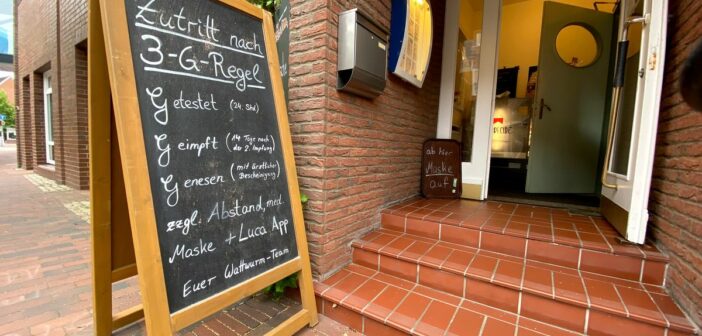 Zutritt nach
3-G-Regel
Getestet (24. Std)
Geimpft (14 Tage nach der 2. Impfung)
Genesen (mit ärztlicher Bescheinigung)
zzgl. Abstand, med.
Maske + Luca App
Euer Wattwurm-Team
ab hier
Maske
auf!